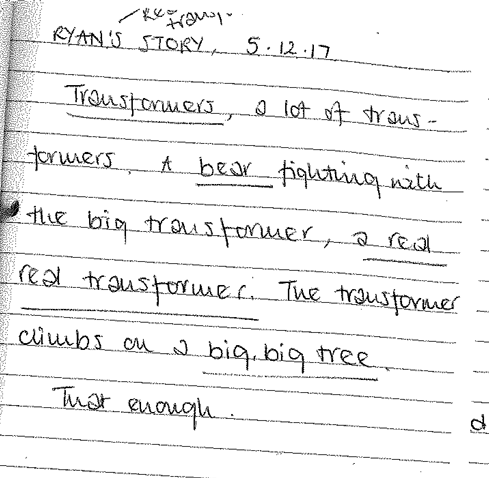 RYAN'S STORY, 5.12.17
Transformers, a lot of trans-
formers. A bear fighting with
the big transformer, a real
real transformer. The transformer
climbs on a big, big tree.
That enough.
d